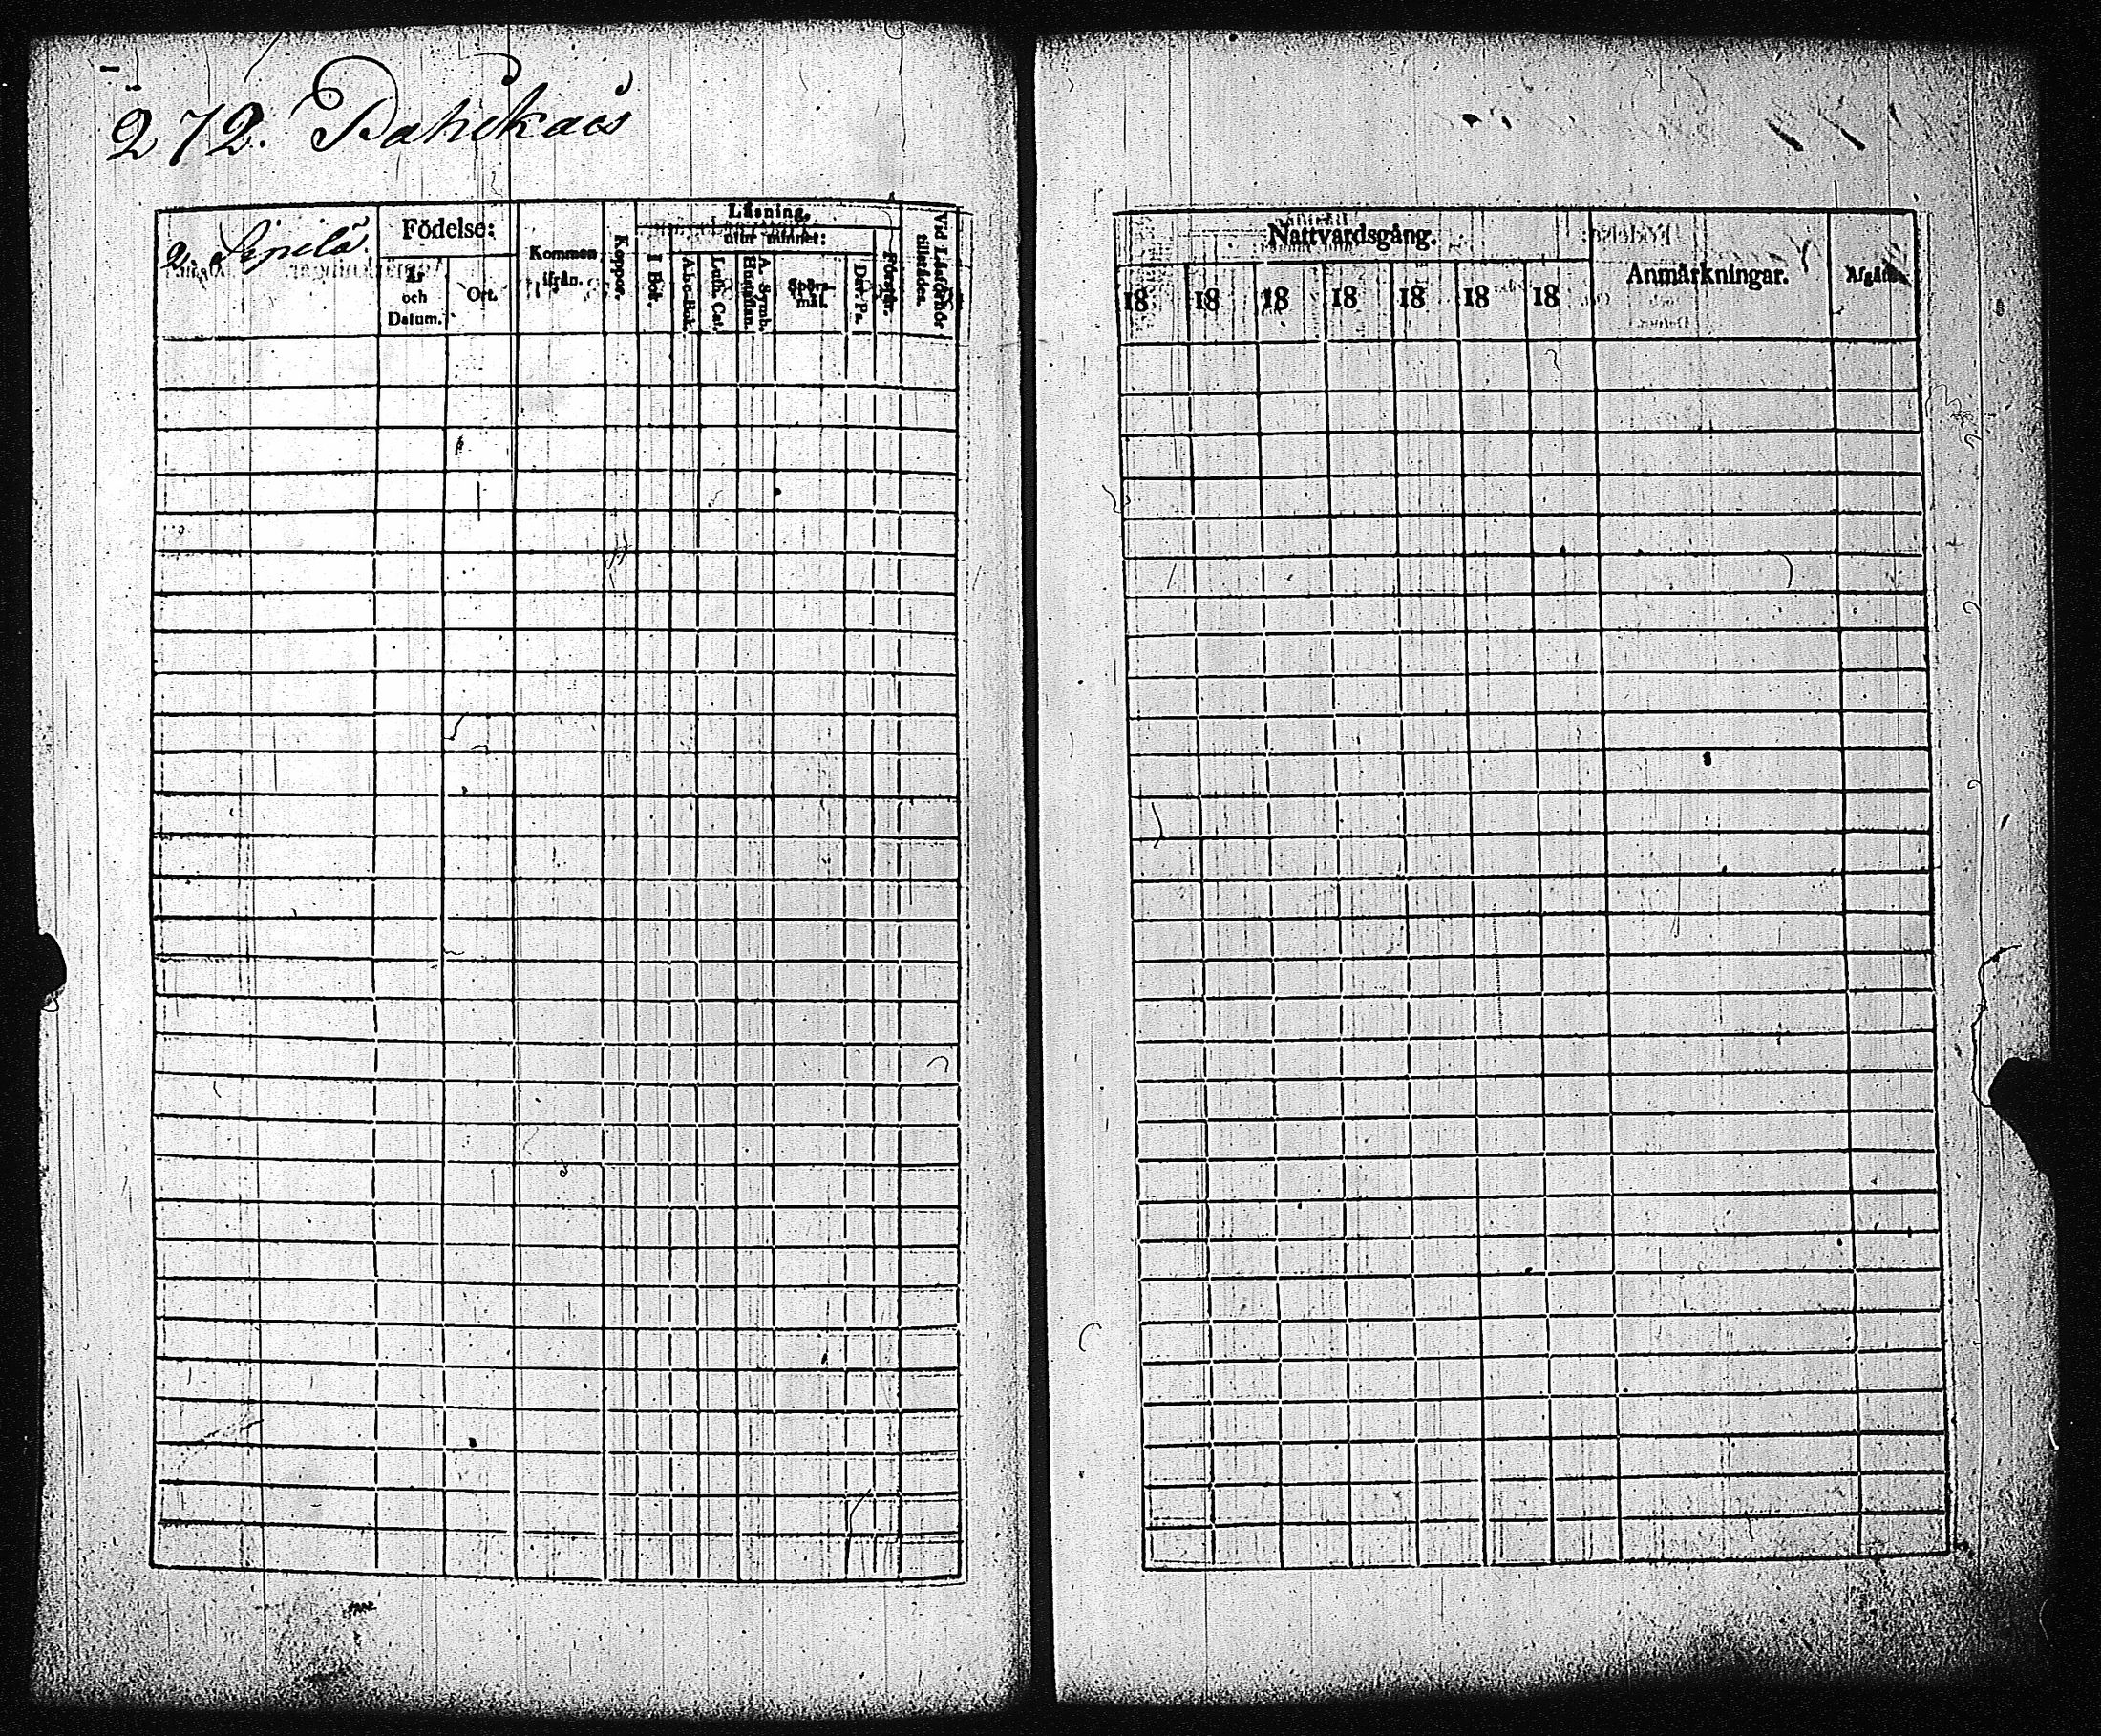 272. Pahikais
2. Sepilä
Födelse:
År och Datum.
Ort.
Kommen ifrån.
Koppor.
Läsning,
I Bok.
utur minnet:
A-b-c-Bok.
Luth. Cat.
A. Symb. Hustaflan.
Spörs-mål.
Dav. Ps.
Förstår.
Vid Läsförhör tillstädes.
Nattvardsgång.
18 18 18 18 18 18 18
Anmärkningar.
Afgått.